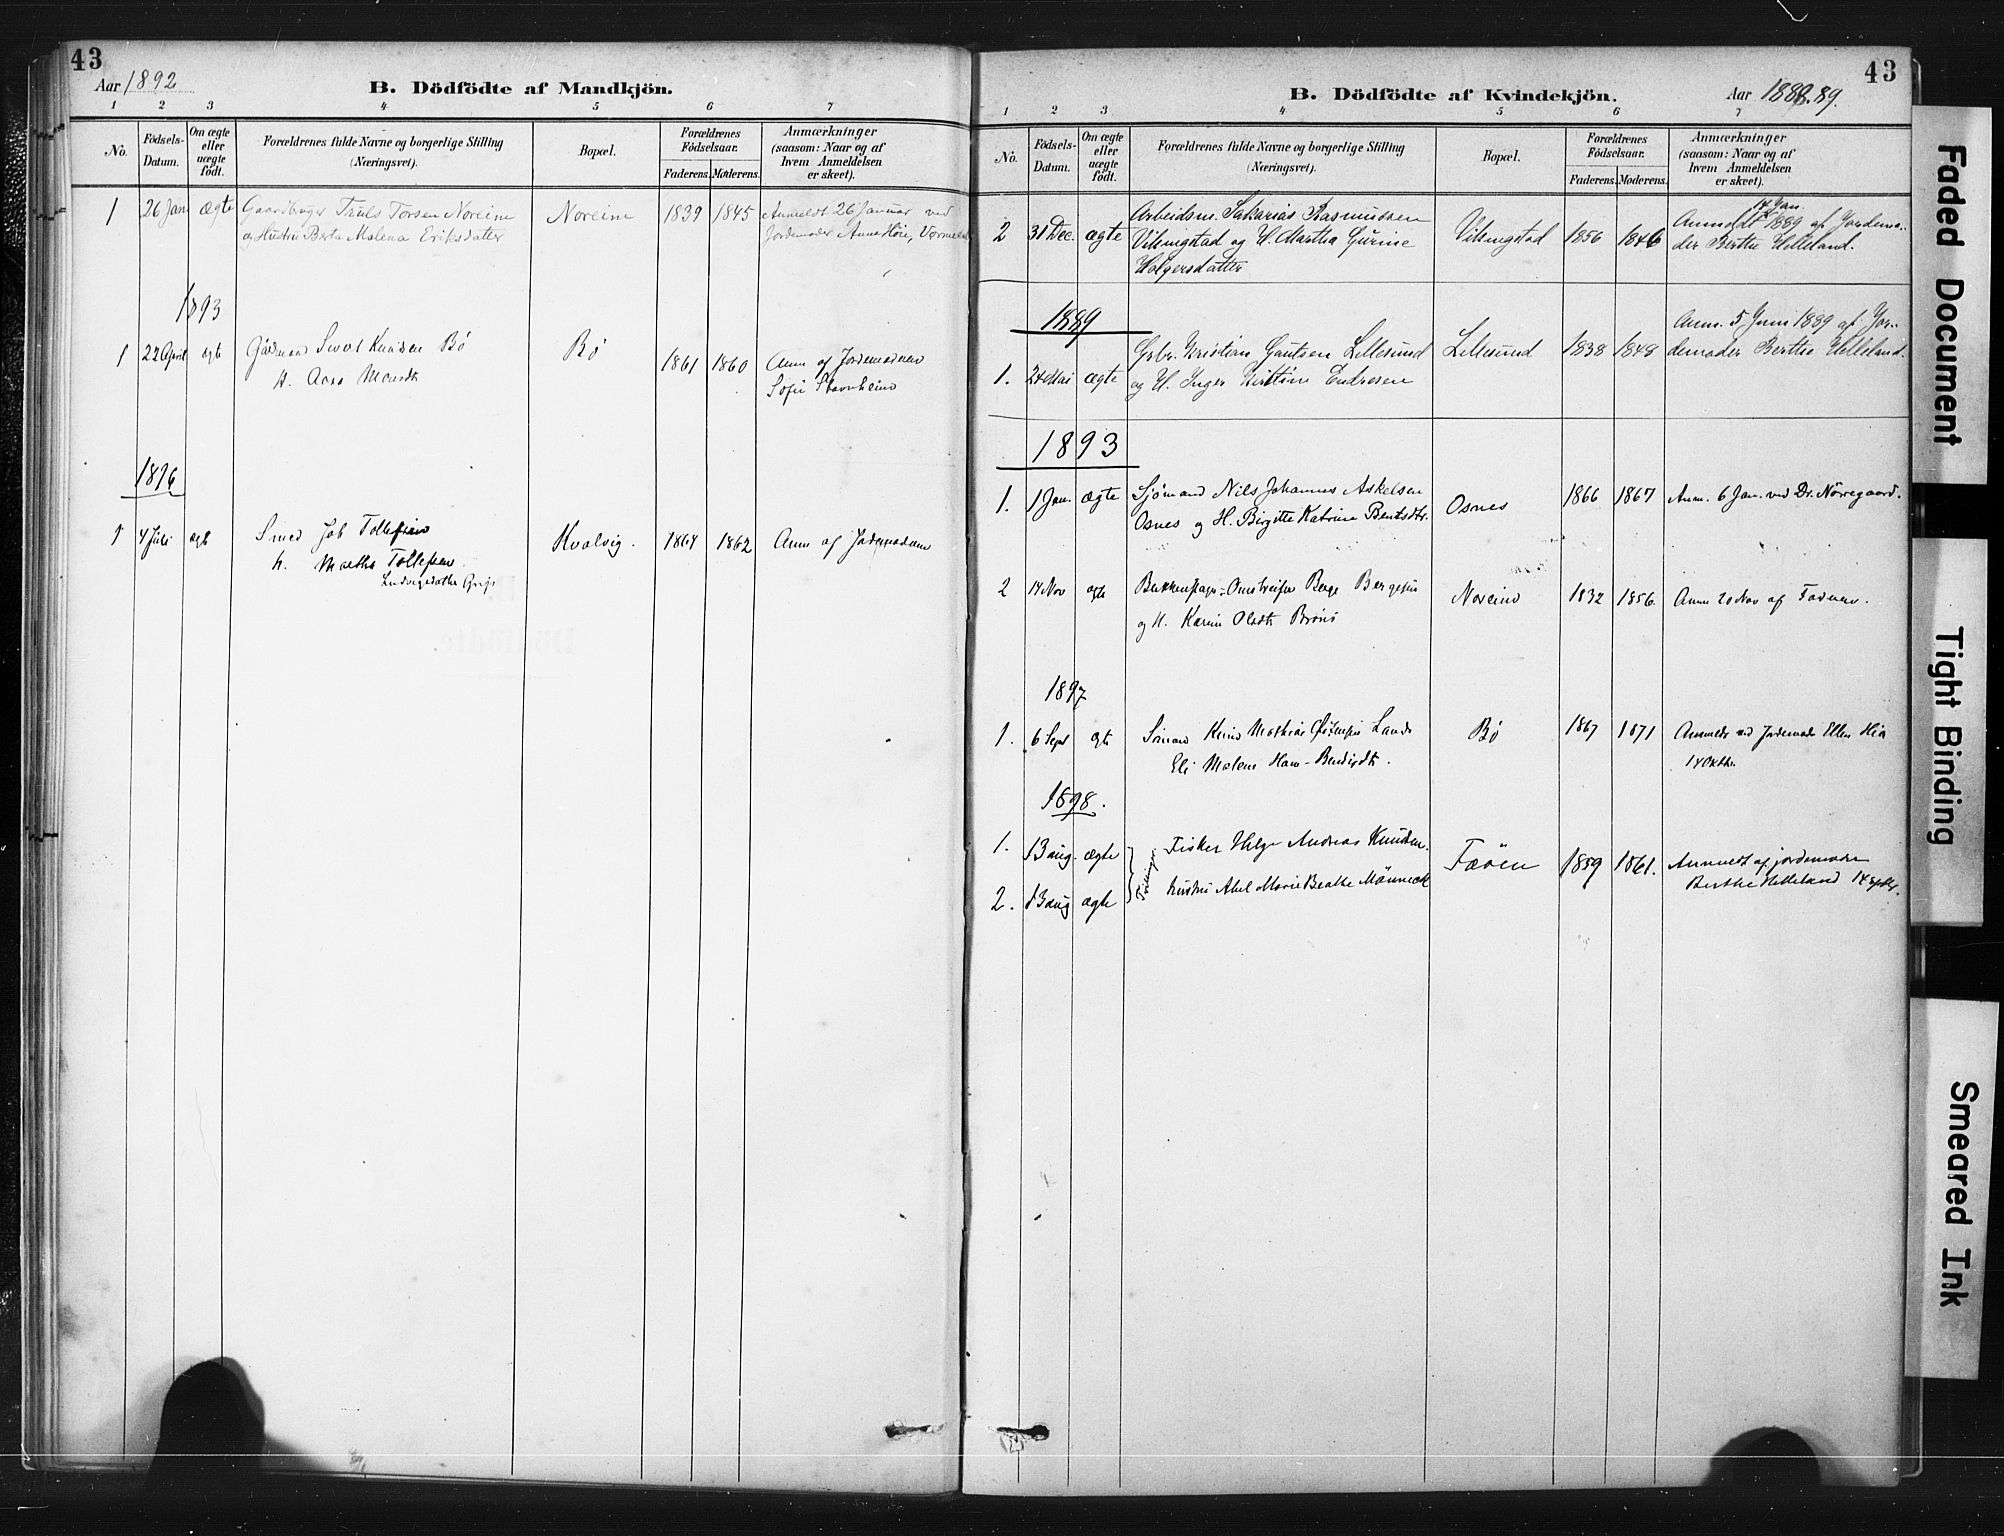 43
Aar 1892
B. Dödfödte af Mandkjön.
1 2 3 4 5 6 7
No.
Födsels-Datum.
Om ægte eller uægte födt.
Forældrenes fulde Navne og borgerlige Stilling (Næringsvei).
Bopæl.
Forældrenes Födselsaar.
Faderens. Moderens.
Anmærkninger (saasom: Naar og af hvem Anmeldelsen er skeet).
1 26 Jan ægte Gaardbruger Truls Torsen Noreim Noreim 1839 1845 Anmeldt 26 Januar ved
og Hustru Berta Malena Eriksdatter Jordemoder Anna Höie,
1893
1 22 April ægte Gårdmand Knudsen Bö Bö 1861 1860 Anm af Jordemoderen
H. Sofie
1896
1 4 Juli ægte Smed Job Tollefsen Kvalvig. 1864 1862 Anm af Jordemoderen
h. Martha Tollefsen
43
B. Dödfödte af Kvindekjön.
Aar 1888.89.
1 2 3 4 5 6 7
No.
Födsels-Datum.
Om ægte eller uægte födt.
Forældrenes fulde Navne og borgerlige Stilling (Næringsvei).
Bopæl.
Forældrenes Födselsaar.
Faderens. Moderens.
Anmærkninger (saasom: Naar og af hvem Anmeldelsen er skeet).
2 31 Dec. ægte Arbeidsm. Sakarias Rasmussen
Vikingstad og H. Martha Gurine
Holgersdatter
Vikingstad 1856 1846 Anmeldt Jan. 1889 af Jordemo-
der Berthe Helleland.
1889
1. 24 Mai ægte Gsbr. Kristian Gautsen Lillesund
og H. Inger Kristine Endresen
Lillesund 1838 1848 Anm. 5 Juni 1889 af Jor-
demoder Berthe Helleland.
1893
1. 1 Jan. ægte Sjömand Nils Johannes Askelsen
Osnes og H. Birgitte Katrine Bentsdtr.
Osnes 1866 1867 Anm. 6 Jan. ved Dr. Nörregaard.
2 14 Nov ægte Berge Bergesen
og H. Karen Olsdtr
Noreim 1832 1856. Anm 20 Nov af Faderen.
1897
1. 6 Sept ægte
Eli Malene
Bö 1867 1871 Anmeldt ved Jordemoder Ellen
14 Oktbr.
1898.
1. 13 aug. ægte Tvillinger Fisker Helge Andreas Knudsen.
2. 13 aug ægte hustru Abel Marie Beathe Mönnick
Faöen 1859 1861. Anmeldt af jordemoder
Berthe Helleland 14 septbr.
Faded Document
Tight Binding
Smeared Ink